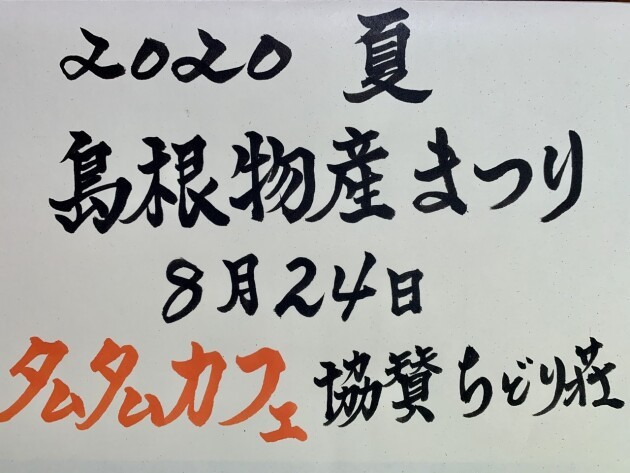 2020 夏
島根物産まつり
8月24日
タムタムカフェ 協賛 ちどり荘